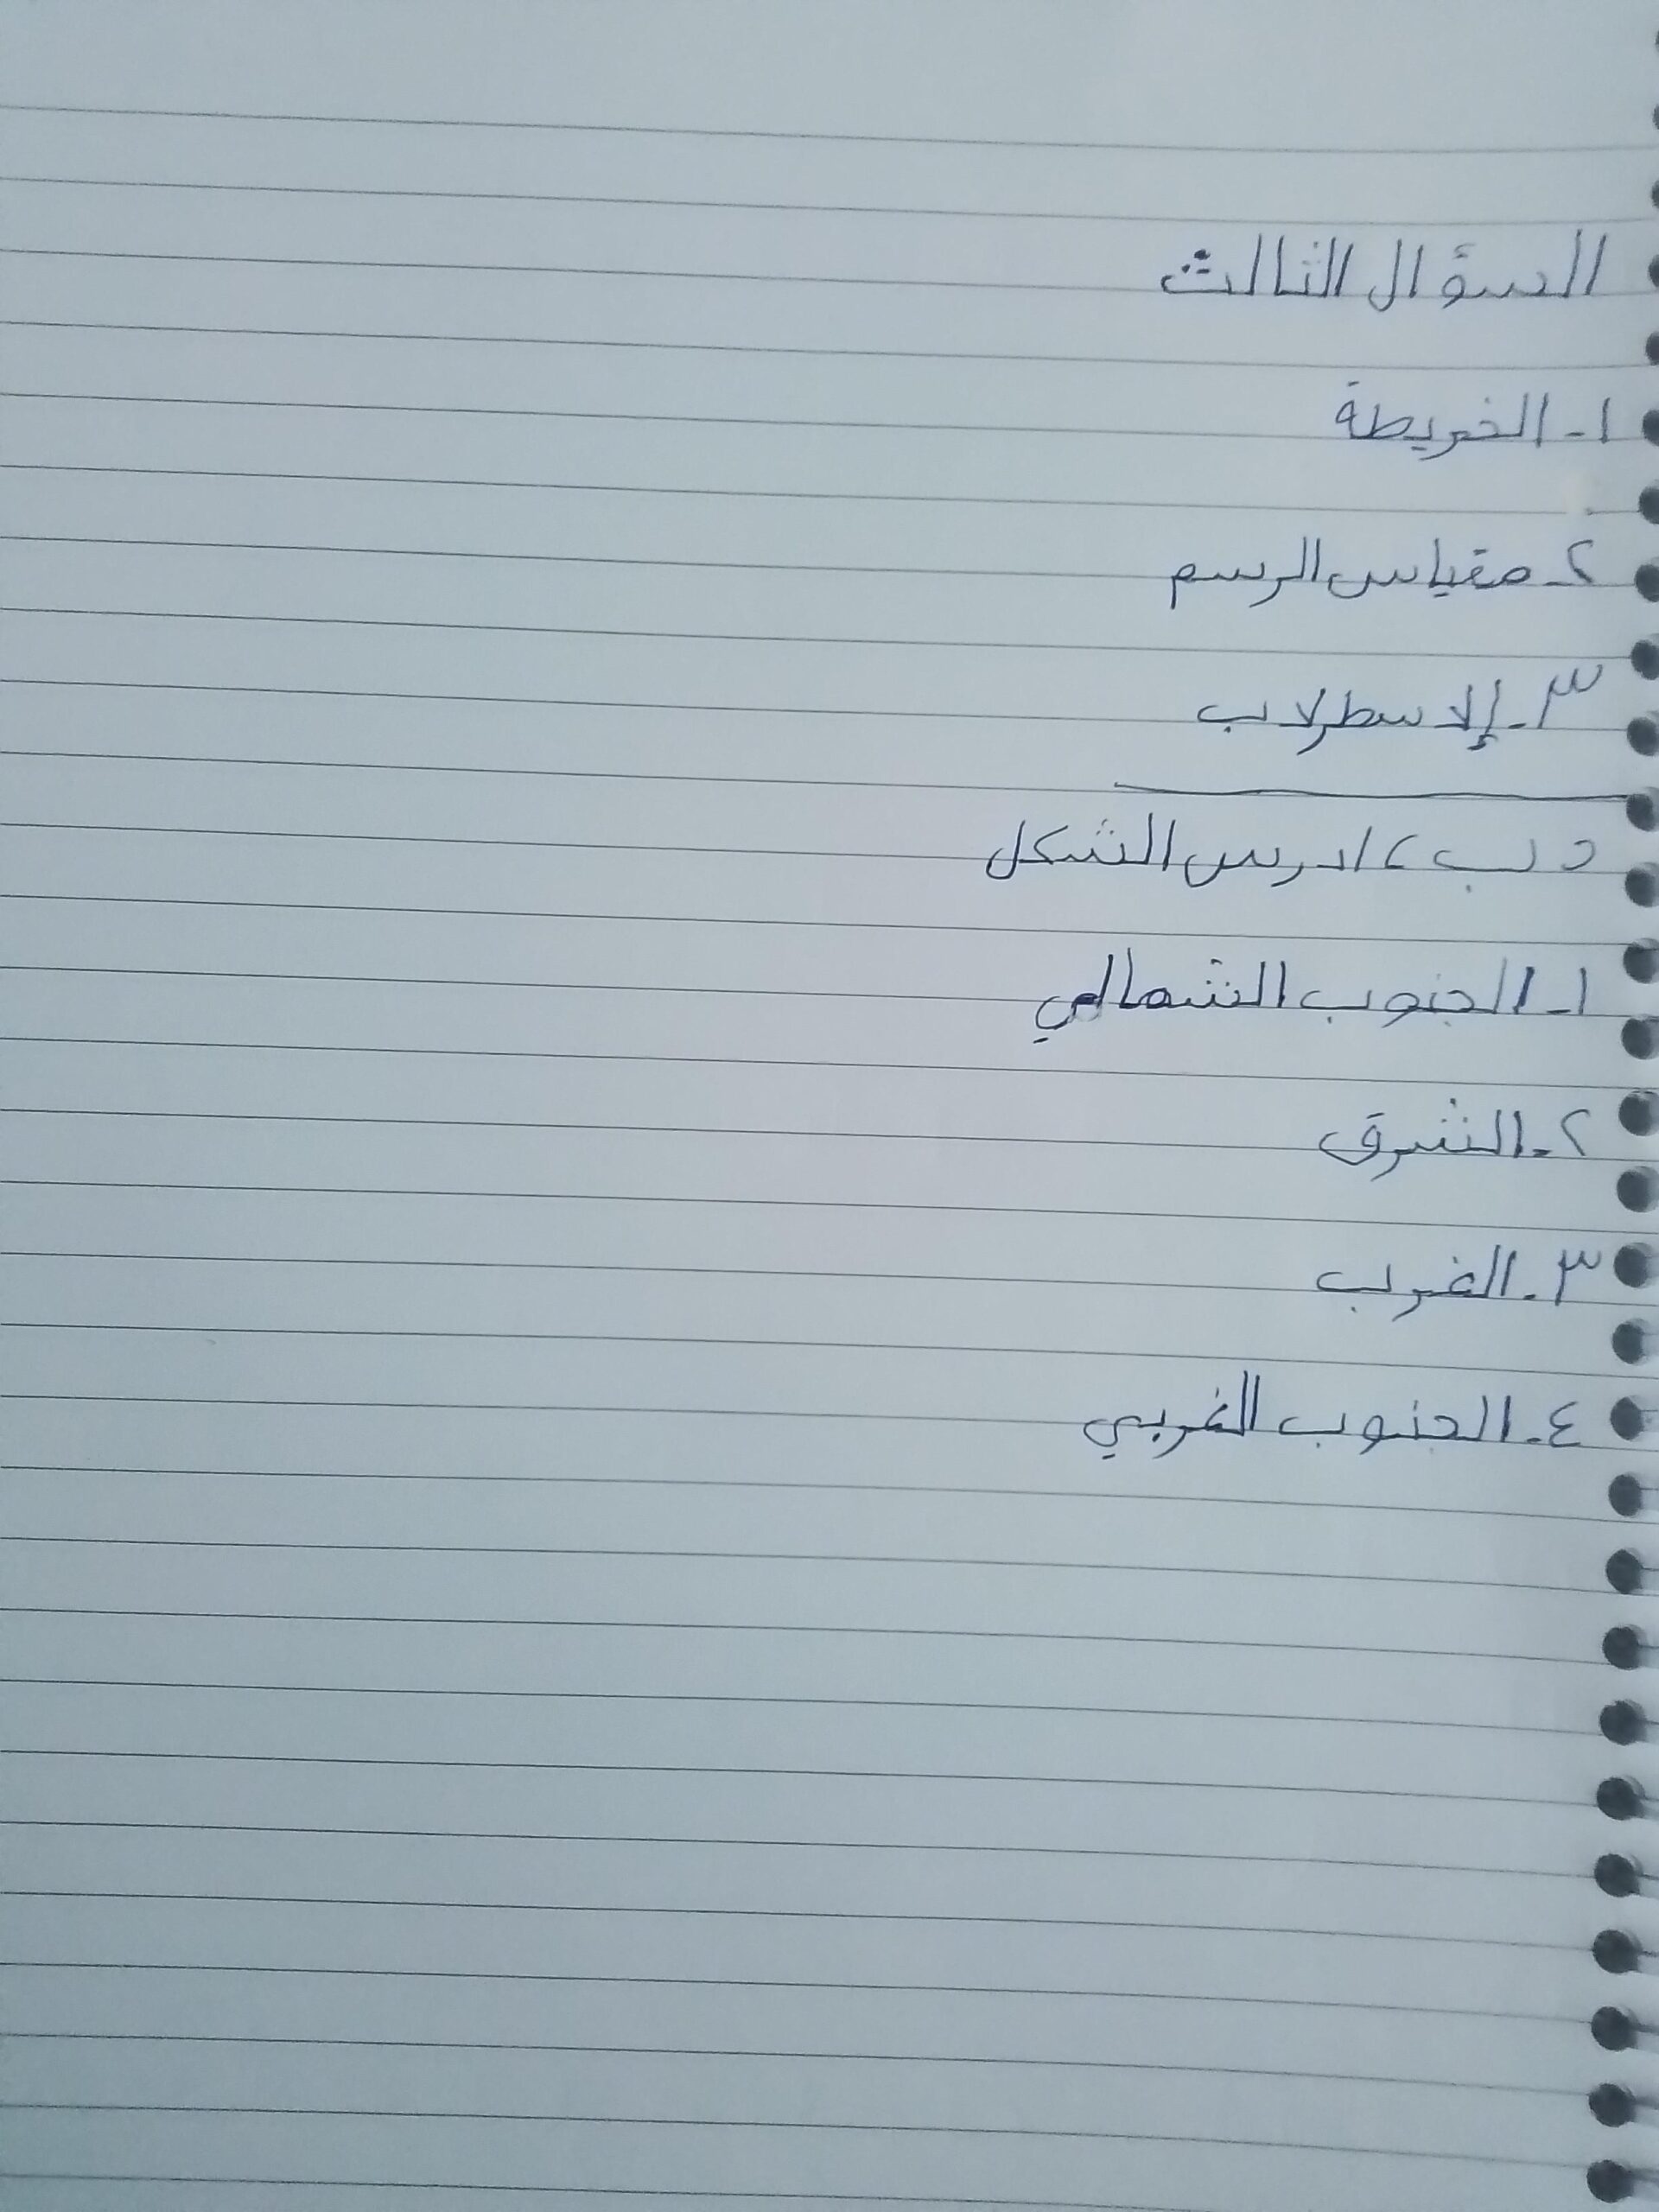 السؤال الثالث
١- الخريطة
٢- مقياس الرسم
٣- إلاسطرلاب
(ب) ادرس الشكل
١- الجنوب الشمالي
٢- الشرق
٣- الغرب
٤- الجنوب الغربي